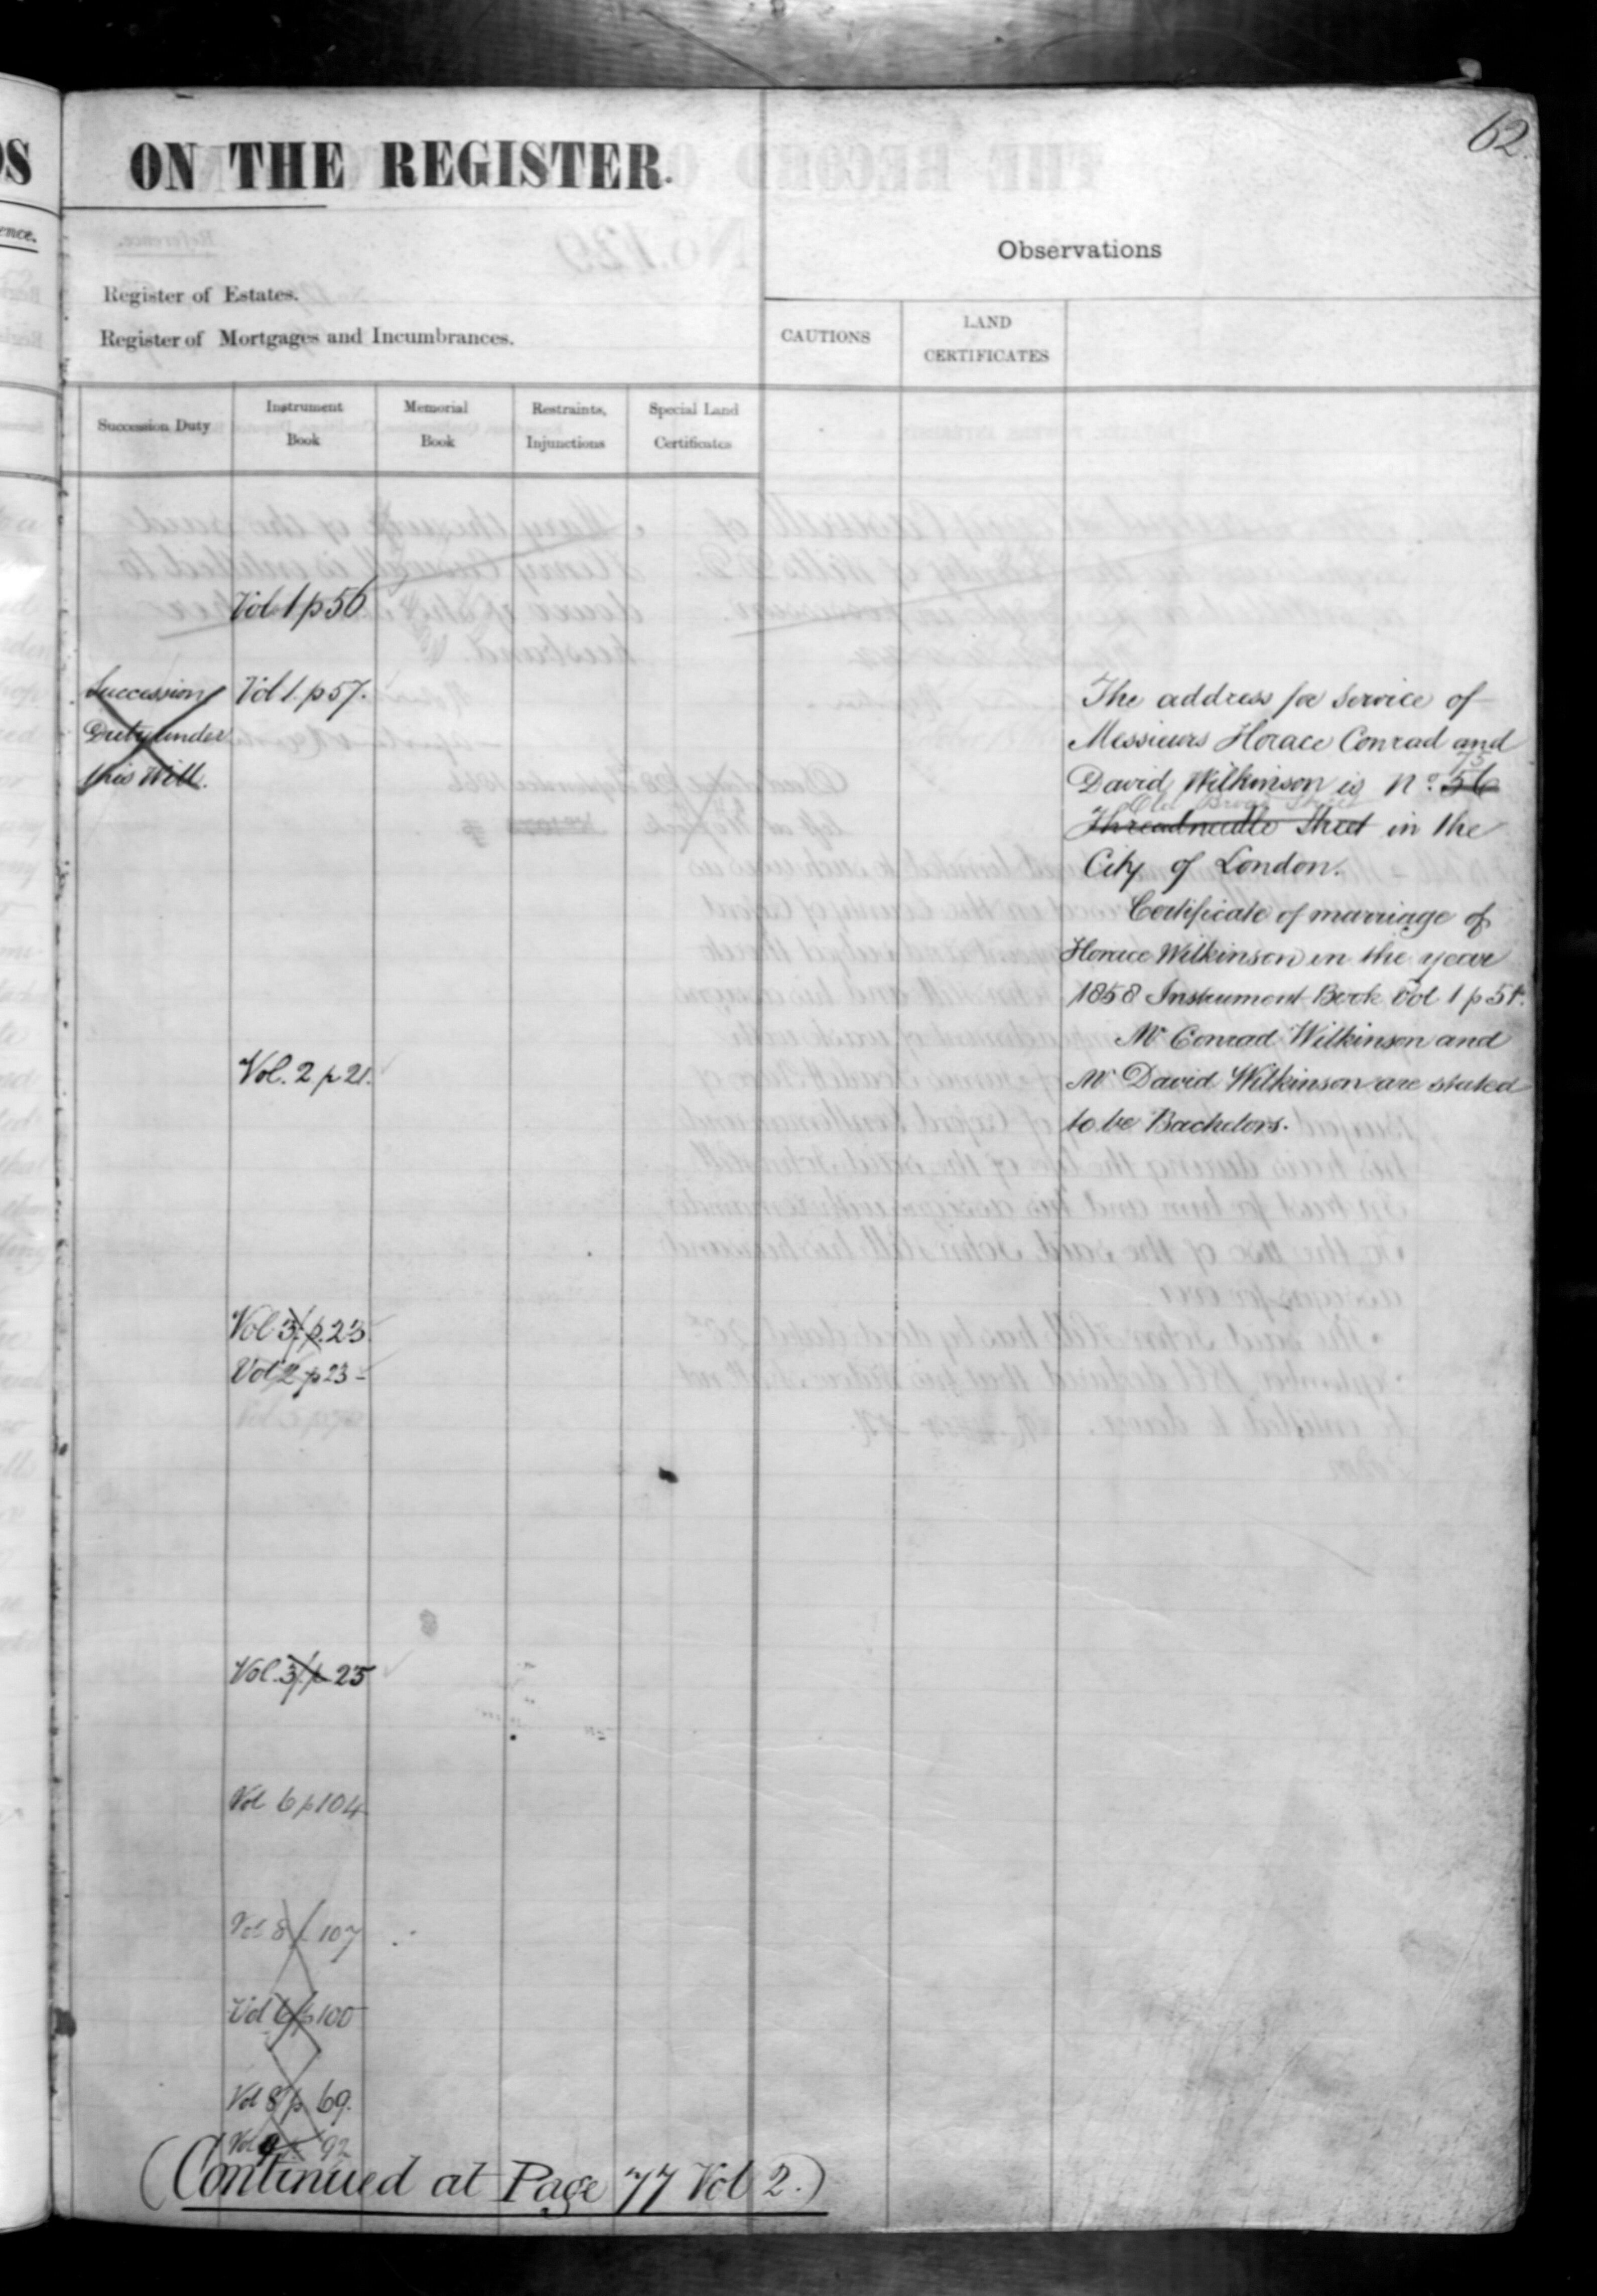 62.
ON THE REGISTER.
Observations
Register of Estates.
Register of Mortgages and Incumbrances.
CAUTIONS
LAND
CERTIFICATES
Succession Duty
Instrument
Book
Memorial
Book
Restraints,
Injunctions
Special Land
Certificates
Vol 1 p 56
Succession
Duty under
this Will.
Vol 1. p 57.
The address for Service of
Messieurs Horace Conrad and
75
David Wilkinson is No. 56
Old Broad Street
Threadneedle Street in the
City of London.
Certificate of marriage of
Horace Wilkinson in the year
1858 Instrument Book Vol 1 p
Mr Conrad Wilkinson and
Vol. 2 p 21.
Mr David Wilkinson are stated
to be Bachelors.
Vol. 3. p. 23
Vol 2 p 23
Vol. 3. p 25
Vol 6 p 104
Vol 8 p 107
Vol 6 p 100
Vol 8 p 69.
Vol 9 p 92
(Continued at Page 77 Vol 2.)